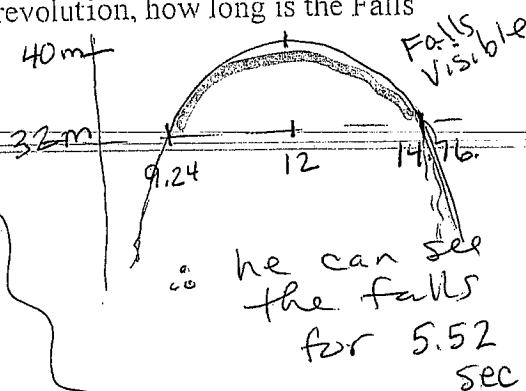 revolution, how long is the Falls
40 m
Falls
Visible
32 m
9.24
12
14.76.
∴ he can see
the falls
for 5.52
sec